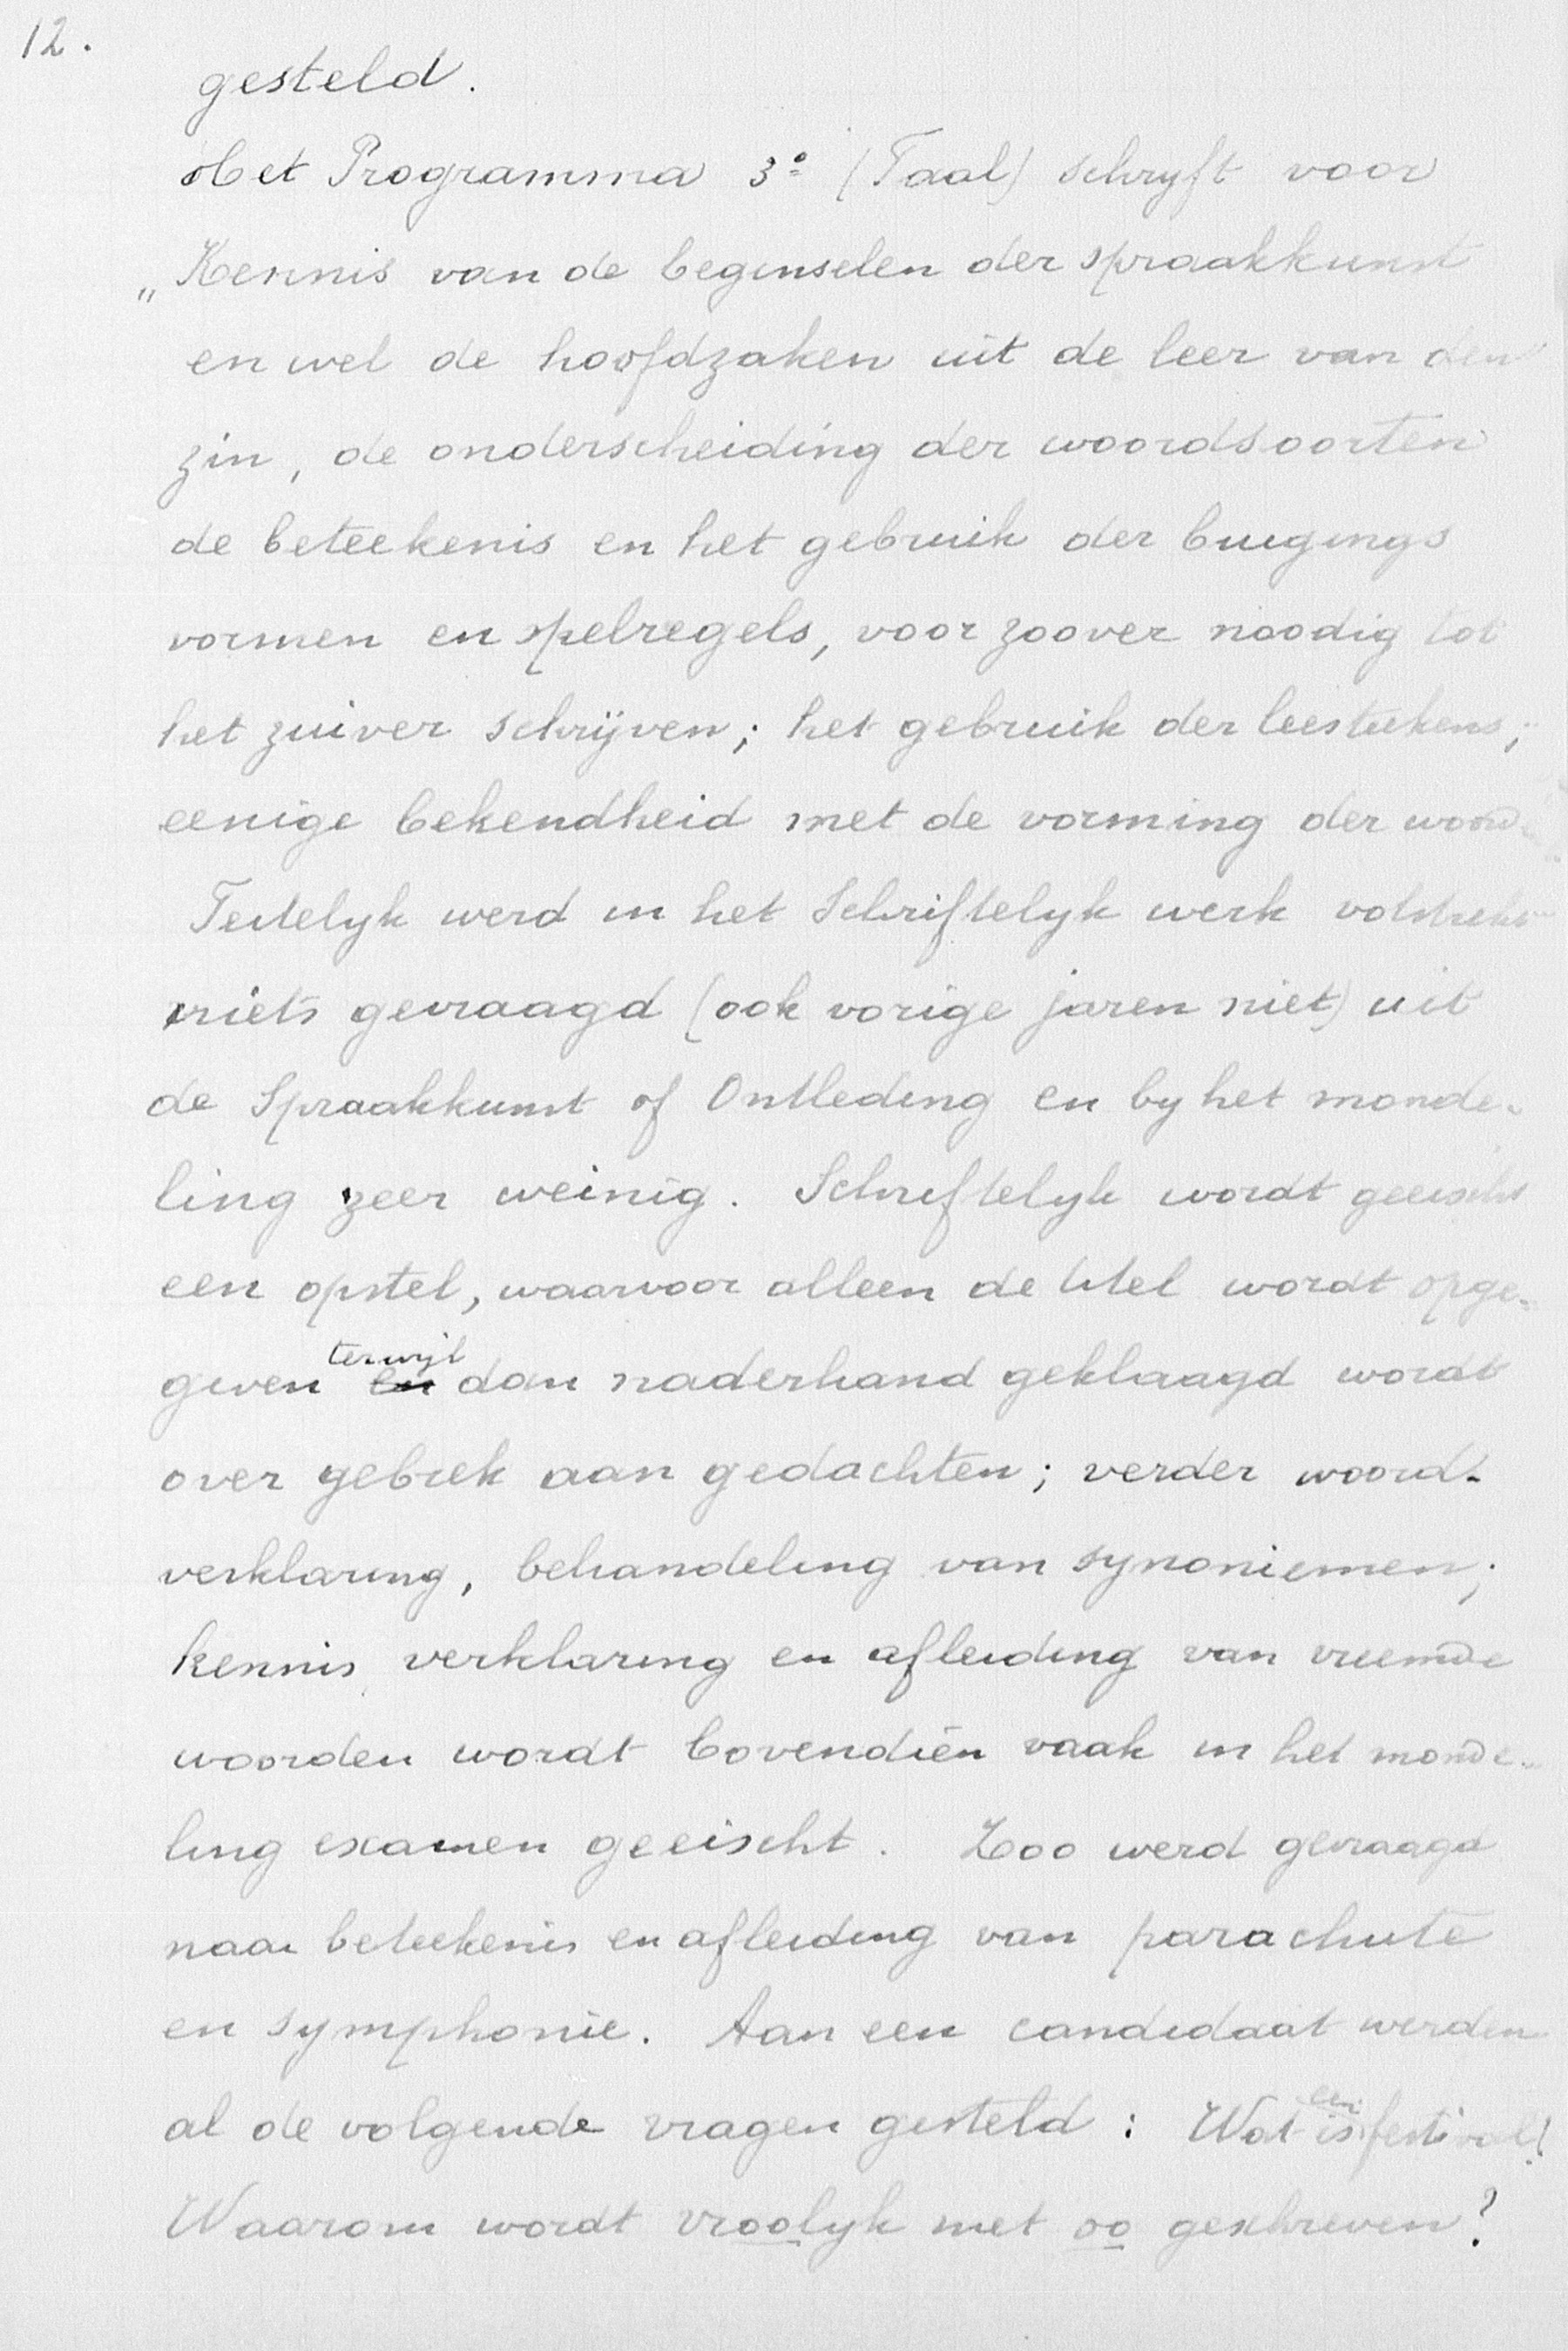 12.
gesteld.
Het Programma 3º (Taal) schryft voor
„Kennis van de beginselen der spraakkunst
en wel de hoofdzaken uit de leer van den
zin, de onderscheiding der woordsoorten
de beteekenis en het gebruik der buigings
vormen en spelregels, voor zoover noodig tot
het zuiver schrijven; het gebruik der leesteekens;
eenige bekendheid met de vorming der
Feitelyk werd in het Schriftelyk werk volstrekt
niets gevraagd (ook vorige jaren niet) uit
de Spraakkunst of Ontleding en by het monde-
ling zeer weinig. Schriftelyk wordt geeischt
een opstel, waarvoor alleen de titel wordt opge-
geven terwijl dan naderhand geklaagd wordt
over gebrek aan gedachten; verder woord-
verklaring, behandeling van synoniemen;
kennis, verklaring en afleiding van vreemde
woorden wordt bovendien vaak in het monde-
ling examen geeischt. Zoo werd gevraagd
naar beteekenis en afleiding van parachute
en symphonie. Aan een candidaat werden
al de volgende vragen gesteld: Wat is een festival?
Waarom wordt vroolyk met oo geschreven?